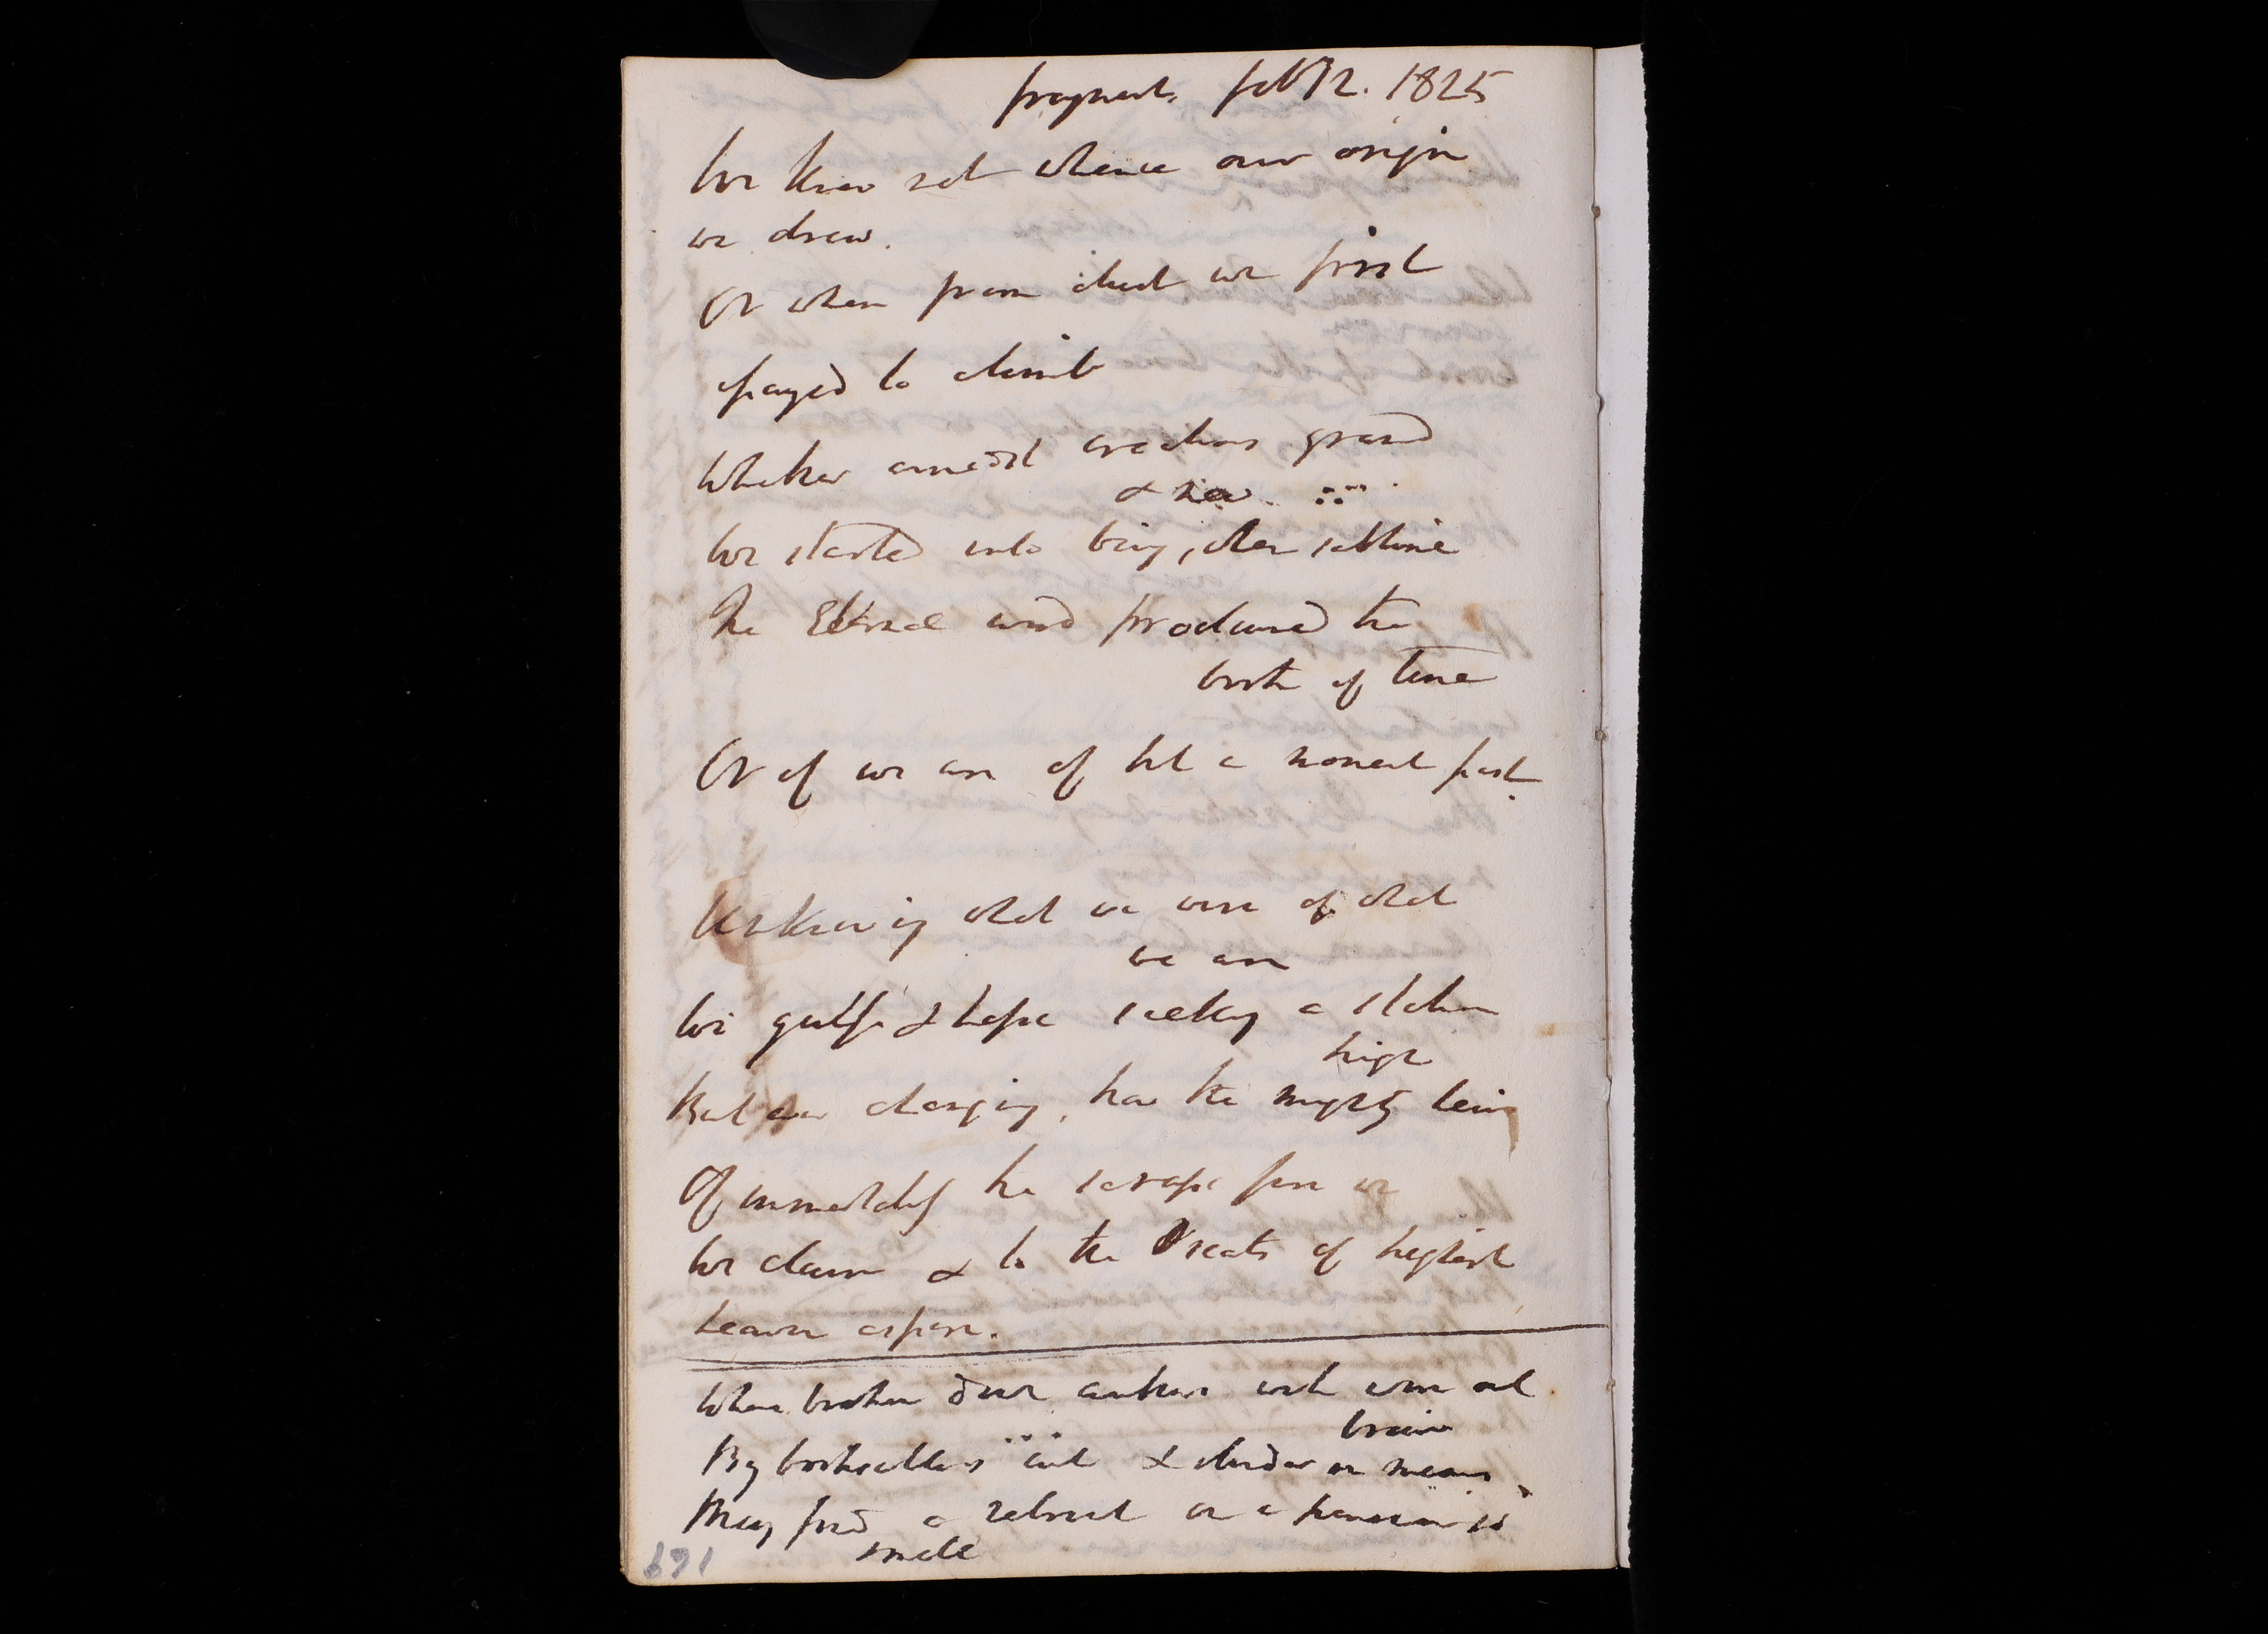 fragment. feb 12. 1825
We know not whence our origin
we drew.
Or when from dust we first
essayed to climb
Whether amidst creations grand
& new
We started into being, when sublime
The Eternal word produced the
birth of time
Or if we are of but a moment past.
Unknowing what we were of what
we are
We & hope seeking a station
high
But ever changing, how the mighty being
Of immortality he scraps from us
We claim & to the seats of highest
heaven aspire.
When broken down authors with worn out
brain
By booksellers cut & slender in means
May find a retreat in a pension so
small
169